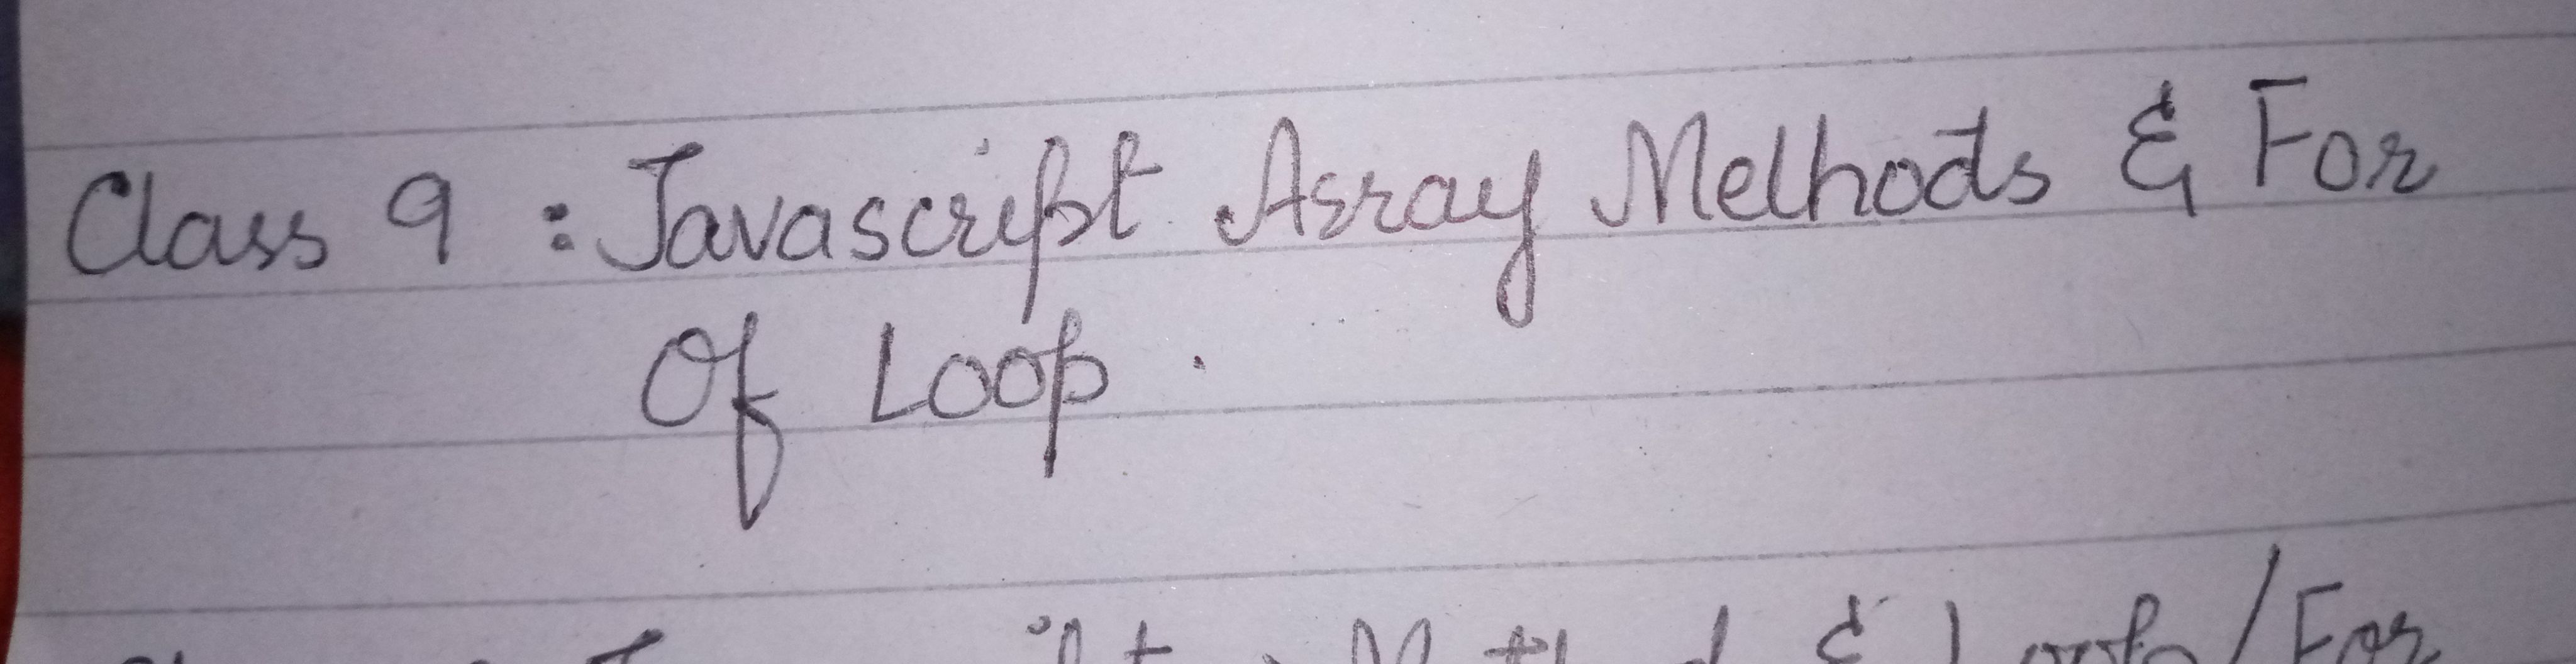 Class 9 : Javascript Array Methods & For
Of Loop.
& Loop/For